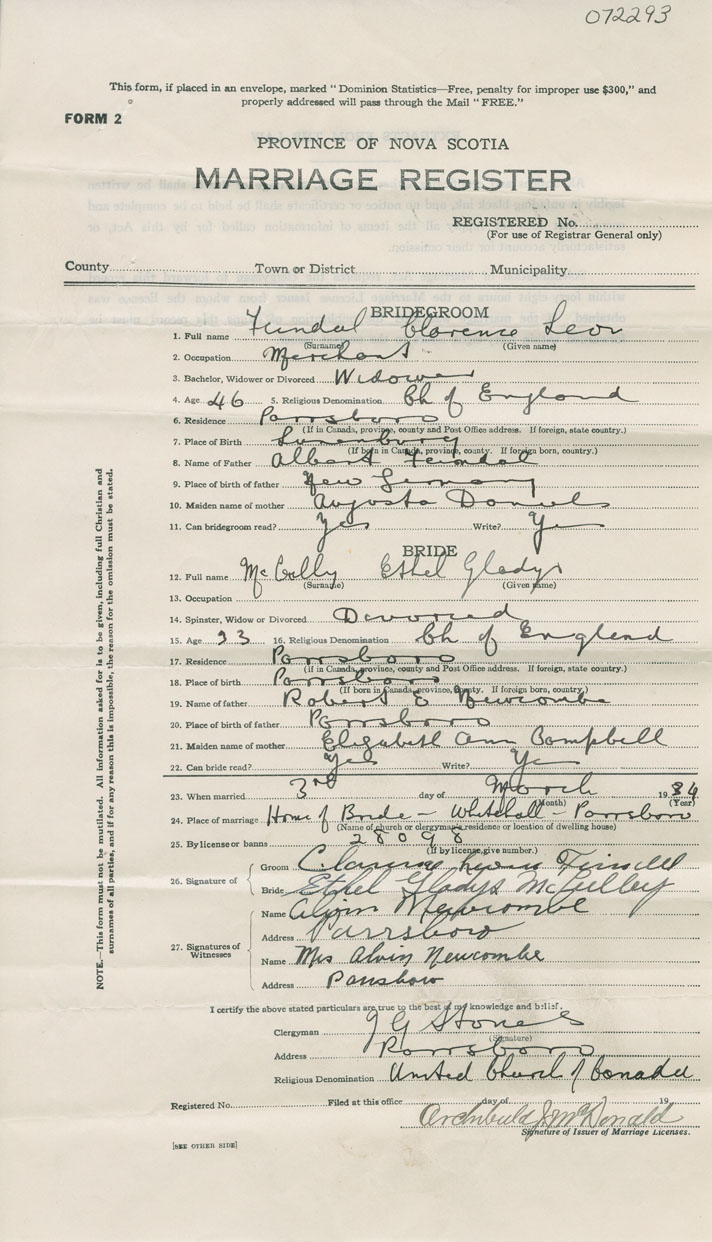 072293
This form, if placed in an envelope, marked "Dominion Statistics—Free, penalty for improper use $300," and
properly addressed will pass through the Mail "FREE."
FORM 2
PROVINCE OF NOVA SCOTIA
MARRIAGE REGISTER
REGISTERED No.
(For use of Registrar General only)
County Town or District Municipality
BRIDEGROOM
1. Full name Feindal Clarence Leon
(Surname) (Given name)
2. Occupation Merchant
3. Bachelor, Widower or Divorced Widower
4. Age 46 5. Religious Denomination Ch of England
6. Residence Parrsboro
(If in Canada, province, county and Post Office address. If foreign, state country.)
7. Place of Birth Lunenburg
(If born in Canada, province, county. If foreign born, country.)
8. Name of Father Albert Feindal
9. Place of birth of father New Germany
10. Maiden name of mother Augusta Daniels
11. Can bridegroom read? Yes Write? Yes
BRIDE
12. Full name McCully Ethel Gladys
(Surname) (Given name)
13. Occupation
14. Spinster, Widow or Divorced Divorced
15. Age 33 16. Religious Denomination Ch of England
17. Residence Parrsboro
(If in Canada, province, county and Post Office address. If foreign, state country.)
18. Place of birth Parrsboro
(If born in Canada, province, county. If foreign born, country.)
19. Name of father Robert E Newcombe
20. Place of birth of father Parrsboro
21. Maiden name of mother Elizabeth Ann Campbell
22. Can bride read? Yes Write? Yes
23. When married 3rd day of March 1934
(Month) (Year)
24. Place of marriage Home of Bride - Whitehall - Parrsboro
(Name of church or clergyman's residence or location of dwelling house)
25. By license or banns 28098
(If by license, give number.)
26. Signature of Groom Clarence Leon Feindel
Bride Ethel Gladys McCulley
27. Signatures of Witnesses Name Alvin Newcombe
Address Parrsboro
Name Mrs Alvin Newcombe
Address Parrsboro
I certify the above stated particulars are true to the best of my knowledge and belief.
Clergyman J G Stones
(Signature)
Address Parrsboro
Religious Denomination United Church of Canada
Registered No. Filed at this office day of 19
Archibald J. McDonald
Signature of Issuer of Marriage Licenses.
[SEE OTHER SIDE]
NOTE.—This form must not be mutilated. All information asked for is to be given, including full Christian and
surnames of all parties, and if for any reason this is impossible, the reason for the omission must be stated.